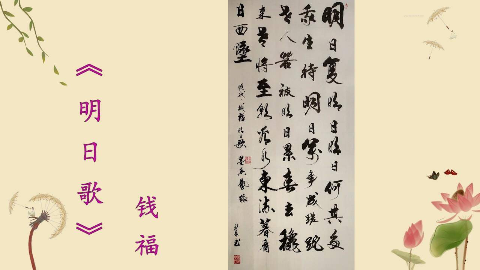 《明日歌》
钱福
明日复明日明日何其多
我生待明日萬事成蹉跎
世人若被明日累春去秋
来老将至朝看水东流暮看
日西墜